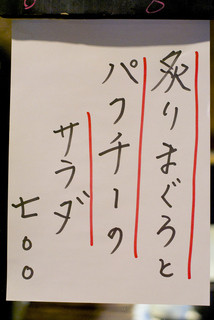 炙りまぐろと
パクチーの
サラダ
七〇〇